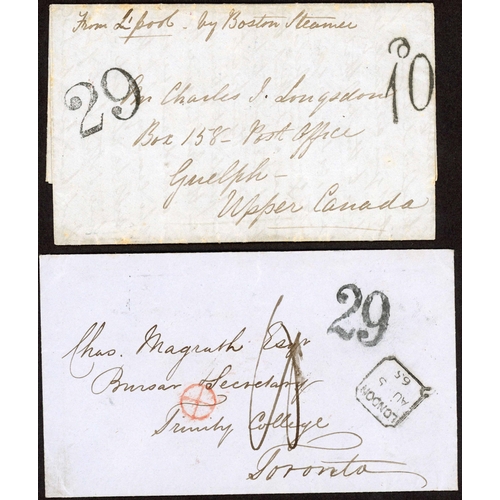 From L'pool - by Boston Steamer
29
10
Charles J. Longsdon
Box 158 - Post Office
Guelph -
Upper Canada
29
Chas. Magrath Esqr
Bursar & Secretary
Trinity College
Toronto
LONDON
AU 5
65